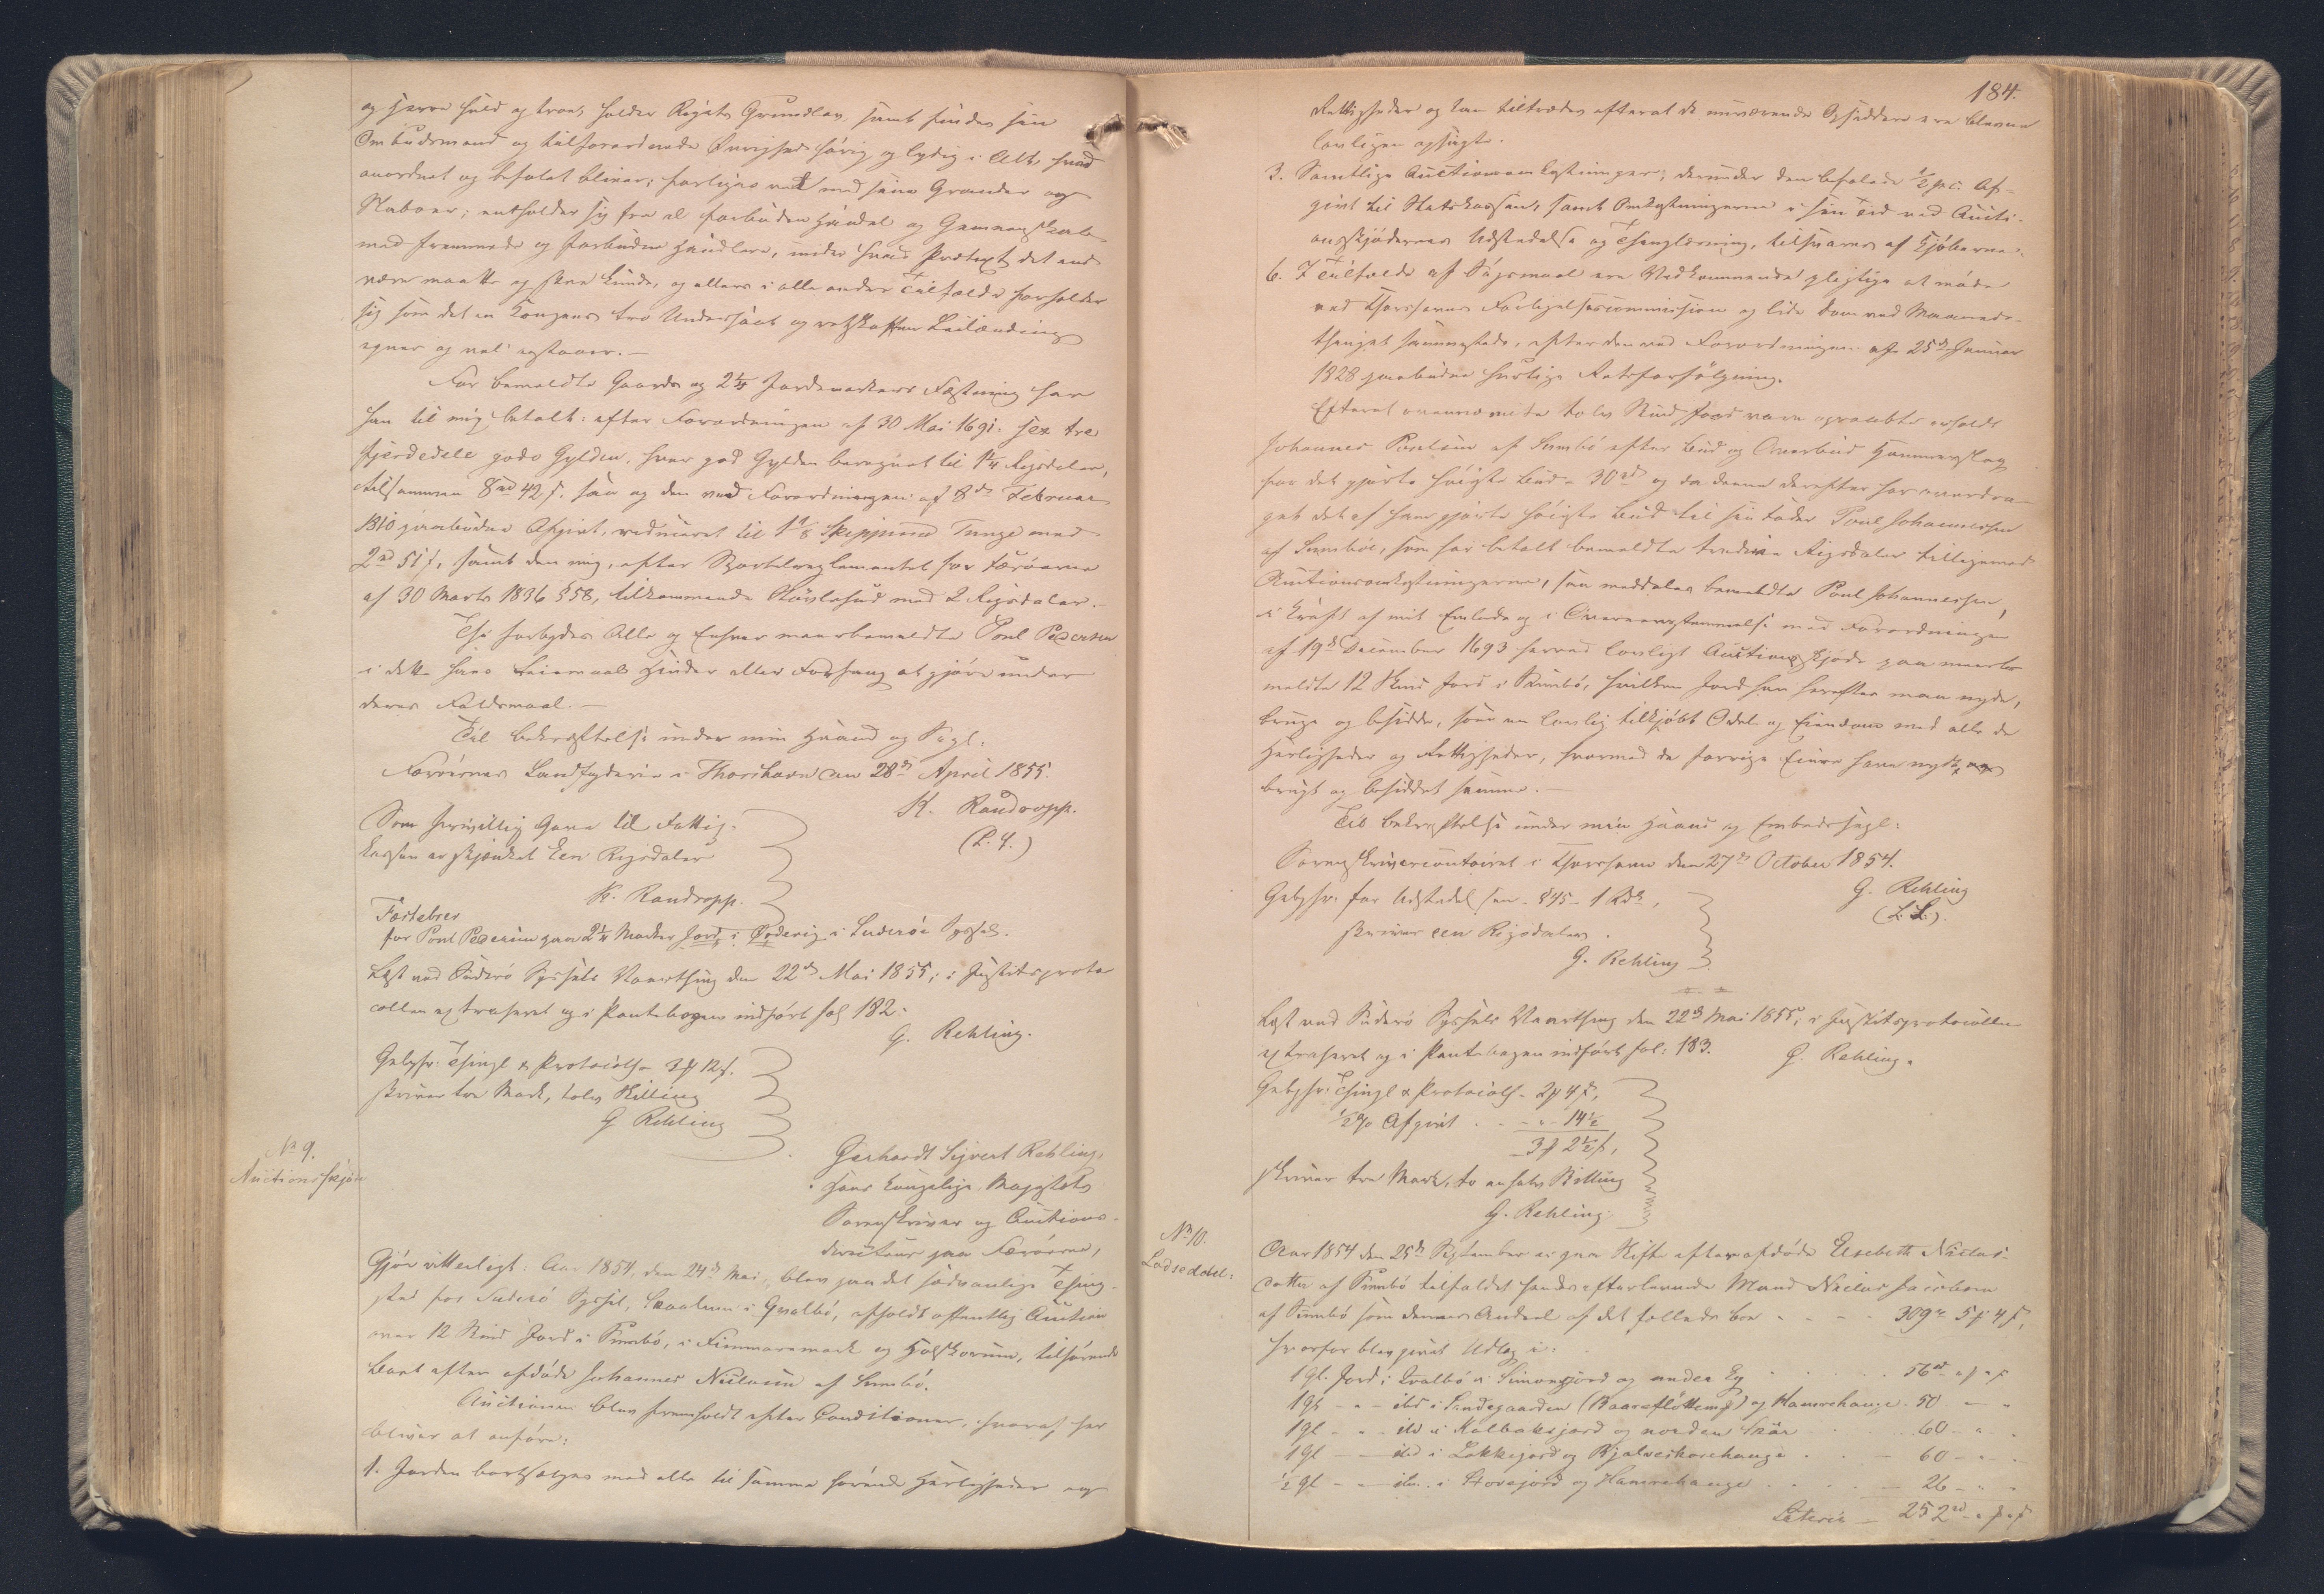 og Herre huld og troe, holder Rigets Grundlov, samt findes sin
Ombudsmand og tilforordnede Øvrighed hørig og lydig i Alt, hvad
anordnet og befalet bliver; forliges vel med sine Grander og
Naboer; entholder sig fra al forbuden Handel og
med fremmede og forbudne Handlere, under hvad Prætext det end
være maatte og skee kunde, og ellers i alle andre Tilfælde forholder
sig som det en Kongens tro Undersaat og retskaffen Leilænding
egner og vel anstaaer. —
For bemeldte Gaards og 2¼ Jordemarkers Fæstning har
han til mig betalt: efter Forordningen af 30 Mai 1691. sex tre
fjerdedele gode Gylden, hver god Gylden beregnet til 1¼ Rigsdaler,
tilsammen 8rd 42 s. saa og den ved Forordningen af 8de Februar
1810 paabudne Afgivt, reduceret til 1⅛ Skippund Tunge med
2rd 51 s, samt den mig, efter Sportelreglementet for Færøerne
af 30 Marts 1836 §58, tilkommende med 2 Rigsdaler.
Thi forbydes Alle og Enhver meerbemeldte Poul Pedersen
i dette hans Leiemaal Hinder eller Forfang at gjøre under
deres Faldsmaal. —
Til Bekræftelse under min Haand og Segl.
Færøernes Landfogderie i Thorshavn den 28de April 1855.
H. Randropp.
(L. S.)
Som frivillig Gave til Fattig-
kassen er skjænket Een Rigsdaler
H. Randropp.
Fæstebrev
for Poul Pedersen paa 2¼ Marker Jord i Øravig i Suderøe Syssel.
Læst ved Suderø Syssels Vaarthing den 22de Mai 1855; i Justitsproto
collen extraheret og i Pantebogen indført fol 182.
G. Rehling.
Gebyhr: Thingl & Protocols 3 ℳ 12 s.
skriver tre Mark, tolv Skilling
G Rehling
No 9.
Auctionsskjøde
Gerhardt Sigvert Rehling,
Hans Kongelige Majestæts
Sorenskriver og Auctions-
directeur paa Færøerne,
Gjør vitterligt: Aar 1854, den 24de Mai, blev paa det sædvanlige Thing-
sted for Suderø Syssel, i Qvalbø, afholdt offentlig Auction
over 12 Skind Jord i Sumbø, i og , tilhørende
Boet efter afdøde Johannes Nielsen af Sumbø.
Auctionen blev fremholdt efter Conditioner, hvoraf her
bliver at anføre:
1. Jorden bortsælges med alle til samme hørende Herligheder og
184.
Rettigheder og kan tiltrædes efterat de nuværende Opsiddere ere blevne
lovligen opsagte.
3. Samtlige Auctionsomkostninger, derunder den befalede ½ pc. Af-
givt til Statskassen, samt Omkostningerne i sin Tid ved Aucti-
onsskjødernes Udstedelse og Thinglæsning, tilsvares af Kjøberne.
6. I Tilfælde af Søgsmaal ere Vedkommende pligtige at møde
ved Thorshavns Forligelsescommission og lide Dom ved Maaneds-
thinget sammesteds, efter den ved Forordningen af 25de Januar
1828 paabudne hurtige Retsforfølgning.
Efterat ovennævnte tolv Skind Jord vare opraabte erholdt
Johannes Poulsen af Sumbø efter Bud og Overbud Hammerslag
for det gjorte høieste Bud - 30rd og da denne derefter har overdra-
get det af ham gjorte høieste Bud til sin Fader Poul Johannessen
af Sumbøe, som har betalt bemeldte tredive Rigsdaler tilligemed
Auctionsomkostningerne, saa meddeles bemeldte Poul Johannessen,
i Kraft af mit Embede og i Overeensstemmelse med Forordningen
af 19de December 1693 herved lovligt Auctionsskjøde paa meerbe-
meldte 12 Skind Jord i Sumbø, hvilken Jord han herefter maa nyde,
bruge og besidde, som en lovlig tilkjøbt Odel og Eiendom med alle de
Herligheder og Rettigheder, hvormed de forrige Eiere have nydt,
brugt og besiddet samme. —
Til Bekræftelse under min Haand og Embedssegl.
Sorenskrivercontoiret i Thorshavn den 27de October 1854.
G. Rehling
(L. S.).
Gebyhr for Udstedelsen - §45 - 1 Rdr,
skriver een Rigsdaler.
G. Rehling
Læst ved Suderø Syssels Vaarthing den 22de Mai 1855; i Justitsprotocollen
extraheret og i Pantebogen indført fol: 183.
G. Rehling.
Gebyhr: Thingl & Protocols - 2 ℳ 4 s,
½ % Afgivt . . - " - 14½
3 ℳ 2½ s,
skriver tre Mark, to en halv Skilling
G. Rehling.
No 10.
Lodseddel:
Aar 1854 den 25de September er paa Skifte efter afdøde Elsebeth Niclas-
datter af Sumbø tilfaldet hendes efterlevende Mand Niclas Jacobsen
af Sumbø som dennes Andeel af det fælleds Boe . . . 309rd 5 ℳ 4 s,
hvorfor blev givet Udlæg i:
1 Gl. Jord i Qvalbø i Simonsjord og under Eg . . . 56rd " ℳ " s
1 Gl - " - ibd i Sandegaarden () og Hamrehauge . 50 - "
1 Gl - " - ibd i Kalbaksjord og norden . . 60 - " -
1 Gl - - ibd i Lokkejord og . — 60 - " -
½ Gl - - ibd. i Hovejord og Hamrehauge . . . — 26 - " -
Lateris — 252rd " ℳ " s